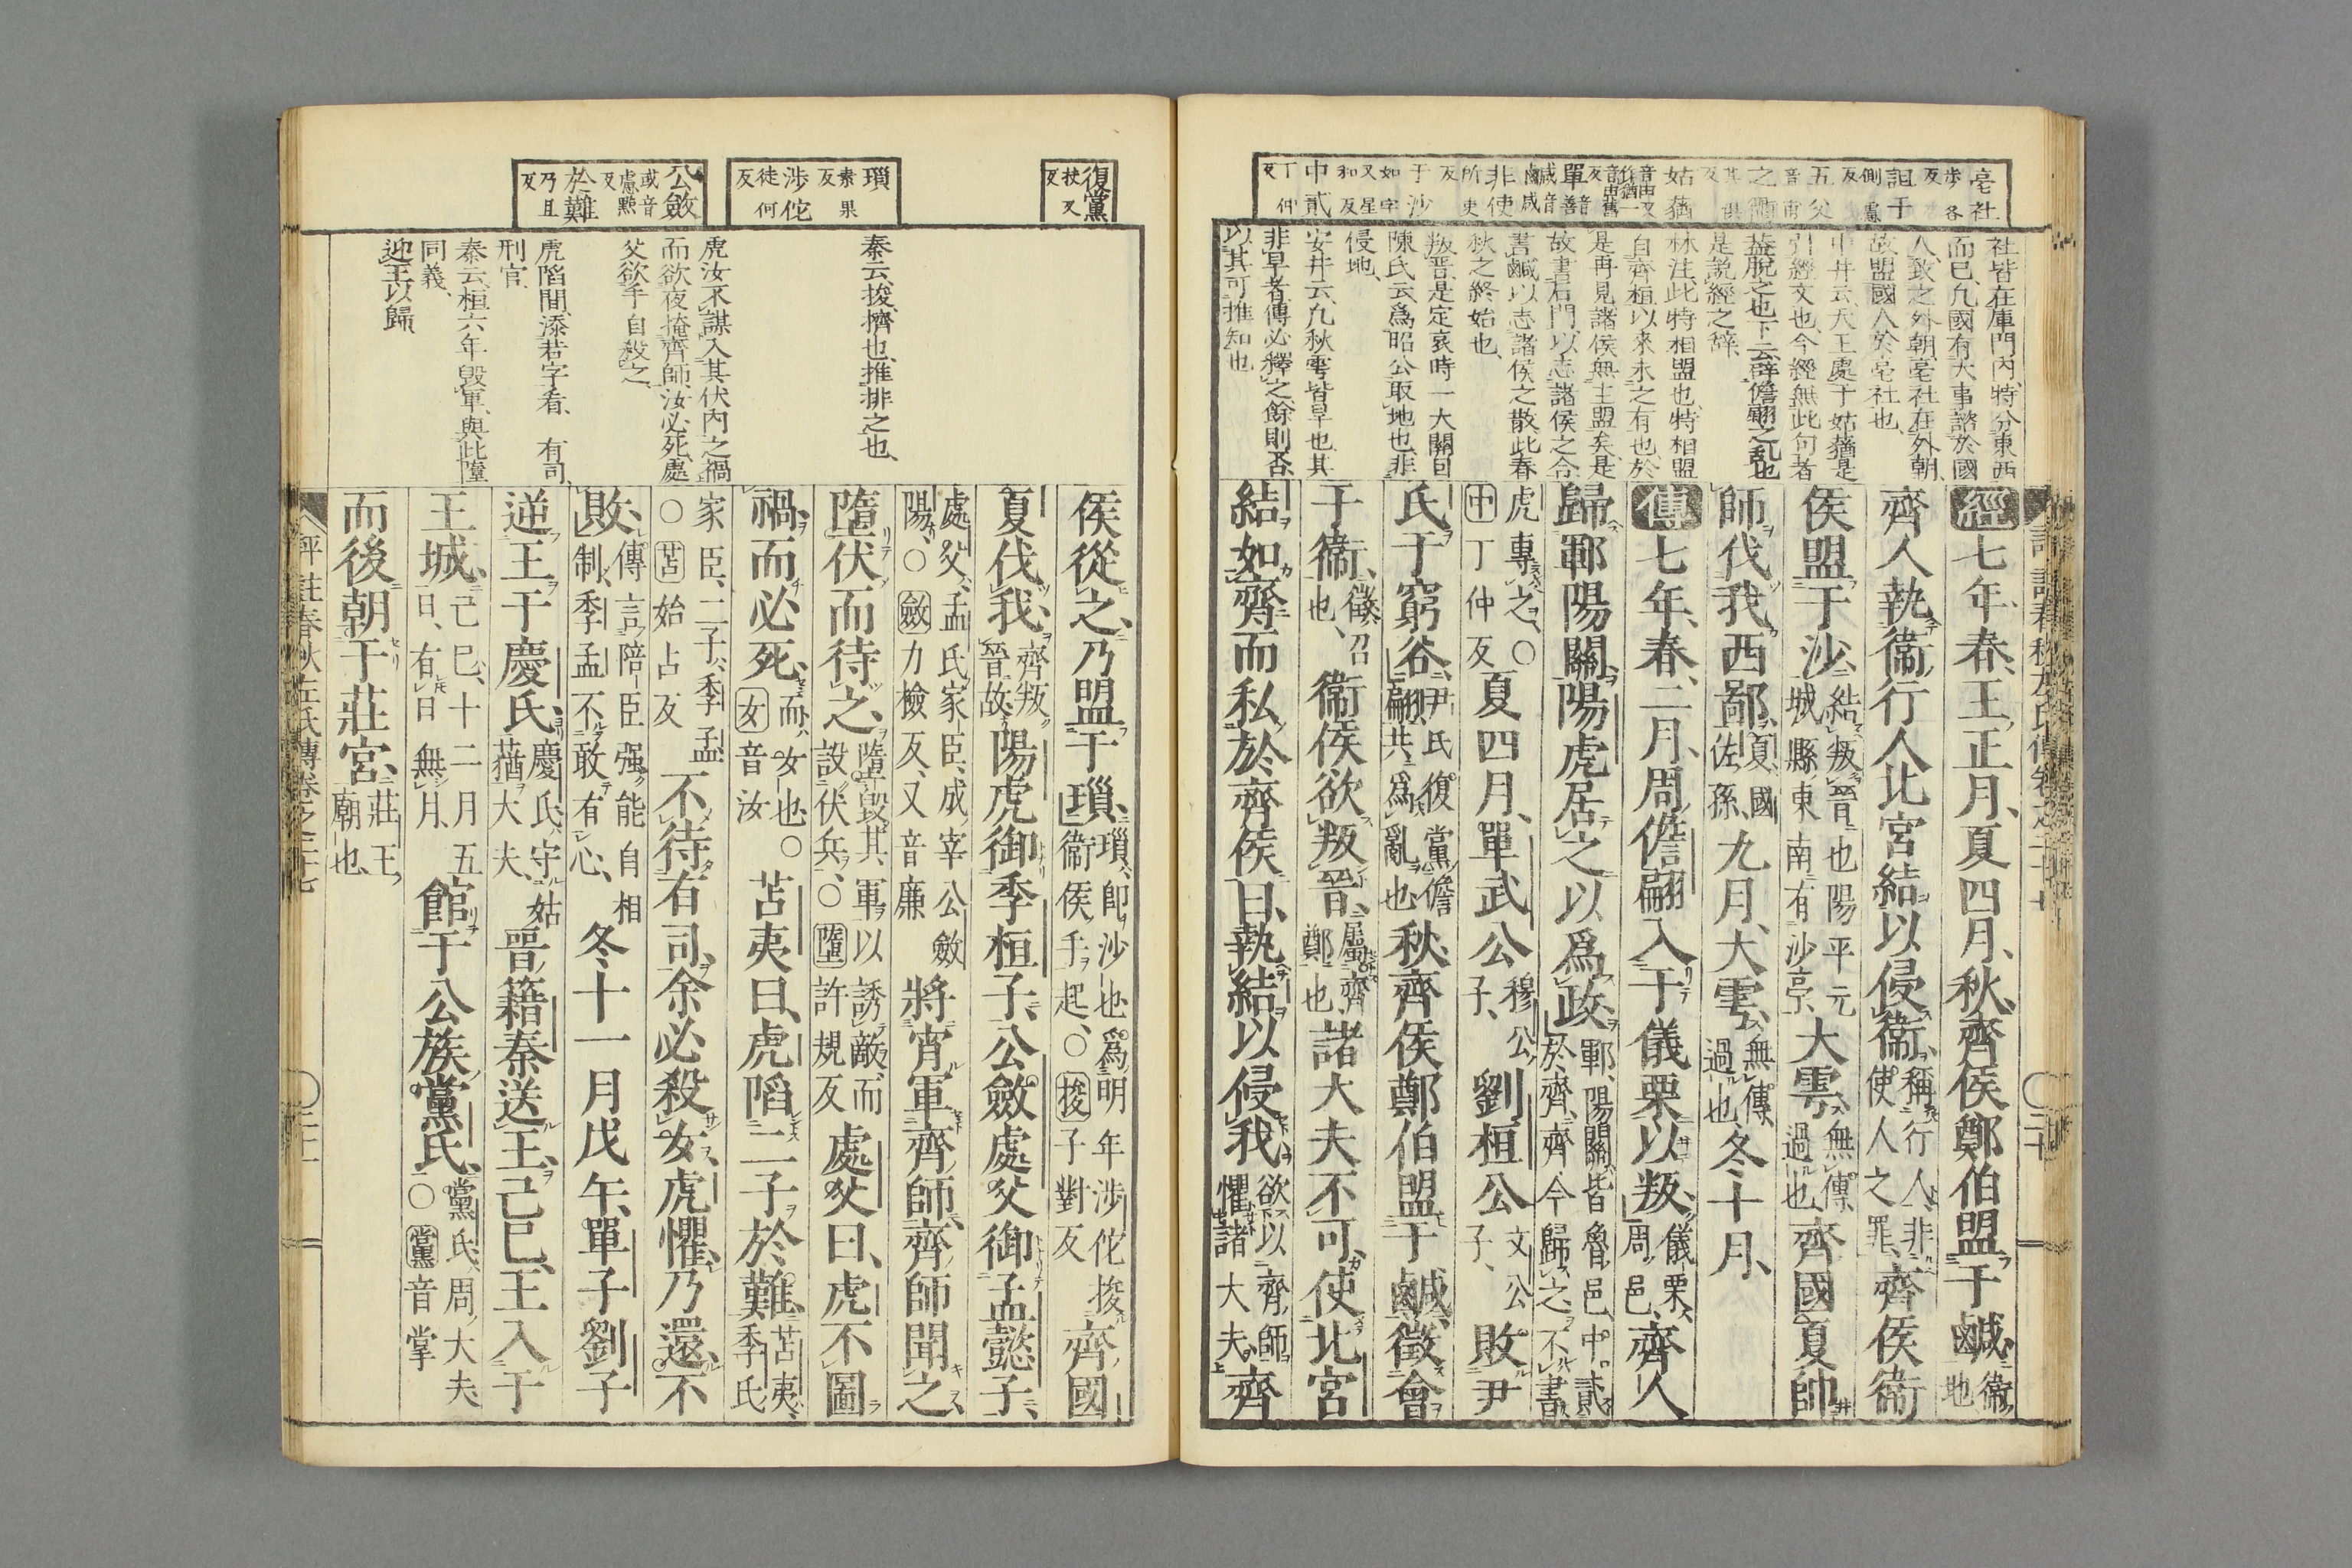 亳社
步各反
詛于
側慮反
五父
音甫
之禍
其俱反
姑蕕
音由又作猶一音由舊反
單
音善
鹹
音咸
非使
所吏反
于沙
如字又星和反
中貳
丁仲反
社皆在庫門內、特分東西
而已、凡國有大事諮於國
人致之外朝、亳社在外朝、
故盟國人於亳社也、
中井云、天王處于姑蕕是
引經文也、今經無此句者
蓋脫之也、下云辟儋翩之亂也
是説經之辭、
林注此特相盟也、特相盟
自齊桓以來未之有也、於
是再見諸侯無主盟矣、是
故書石門以志諸侯之合
書鹹以志諸侯之散、此春
秋之終始也、
叛晋是定哀時一大關目
陳氏云、爲昭公取地也、非
侵地、
安井云、凡秋雩皆旱也、其
非旱者傳必釋之、餘則否、
以其可推知也
經七年、春、王正月、夏四月、秋、齊侯鄭伯盟于鹹、衞地
齊人執衞行人北宮結以侵衞、稱行人、非使人之罪、齊侯衞
侯盟于沙、結叛晉也陽平元城縣東南有沙亭、大雩、無傳、過也、齊國夏帥
師伐我西鄙、夏、國佐孫、九月、大雩、無傳、過也、冬十月、
傳七年、春、二月、周儋翩入于儀栗以叛、儀栗、周邑、齊人
歸鄆陽關陽虎居之以爲政、鄆、陽關、皆魯邑、中貳於齊、齊今歸之、不書、
虎專之、〇中丁仲反夏四月、單武公穆公子、劉桓公文公子、敗尹
氏于窮谷、尹氏復黨儋翩共爲亂也、秋、齊侯鄭伯盟于鹹、徵會
于衞、徵、召也、衞侯欲叛晉、屬齊鄭也、諸大夫不可、使北宮
結如齊而私於齊侯曰、執結以侵我、欲以齊師懼諸大夫、齊
復黨
扶又反
瑣
素果反
涉佗
徒何反
公斂
或音慮黙反
於難
乃旦反
秦云、捘、擠也、推排之也、
虎汝不謀入其伏內之禍
而欲夜掩齊師、汝必死、處
父欲手自殺之、
虎陷間添若字看、有司
刑官、
秦云、桓六年毀軍、與此墮
同義、
迎王以歸、
侯從之、乃盟于瑣、瑣、卽沙也、爲明年涉佗捘衞侯手起、〇捘子對反齊國
夏伐我、齊叛晉故、陽虎御季桓子、公斂處父御孟懿子、
處父、孟氏家臣、成宰公斂陽、〇斂力檢反、又音廉將宵軍齊師、齊師聞之、
墮伏而待之、墮毀其軍以誘敵、而設伏兵、〇墮許規反處父曰、虎不圖
禍、而必死、而、女也、〇女音汝苫夷曰、虎陷二子於難、苫夷、季氏
家臣、二子、季孟、〇苫始占反不待有司、余必殺女、虎懼、乃還、不
敗、傳言陪臣强能自相制、季孟不敢有心、冬十一月戊午、單子劉子
逆王于慶氏、慶氏、守姑蕕大夫、晉籍秦送王、己巳、王入于
王城、己巳、十二月五日、有日無月、館于公族黨氏、黨氏、周大夫、〇黨音掌
而後朝于莊宮、莊王廟也、
評註春秋左氏傳卷之二十七